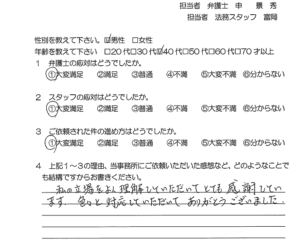 担当者 弁護士 申 景秀
担当者 法務スタッフ 富岡
性別を教えて下さい。☑男性 □女性
年齢を教えて下さい □20代□30代☑40代□50代□60代□70才以上
1 弁護士の応対はどうでしたか。
①大変満足 ②満足 ③普通 ④不満 ⑤大変不満 ⑥分からない
2 スタッフの応対はどうでしたか。
①大変満足 ②満足 ③普通 ④不満 ⑤大変不満 ⑥分からない
3 ご依頼された件の進め方はどうでしたか。
①大変満足 ②満足 ③普通 ④不満 ⑤大変不満 ⑥分からない
4 上記1~3の理由、当事務所にご依頼いただいた感想など、どのようなことで
も結構ですからお書きください。
私の立場をよく理解していただいてとても感謝してい
ます。色々と対応していただいてありがとうございました。